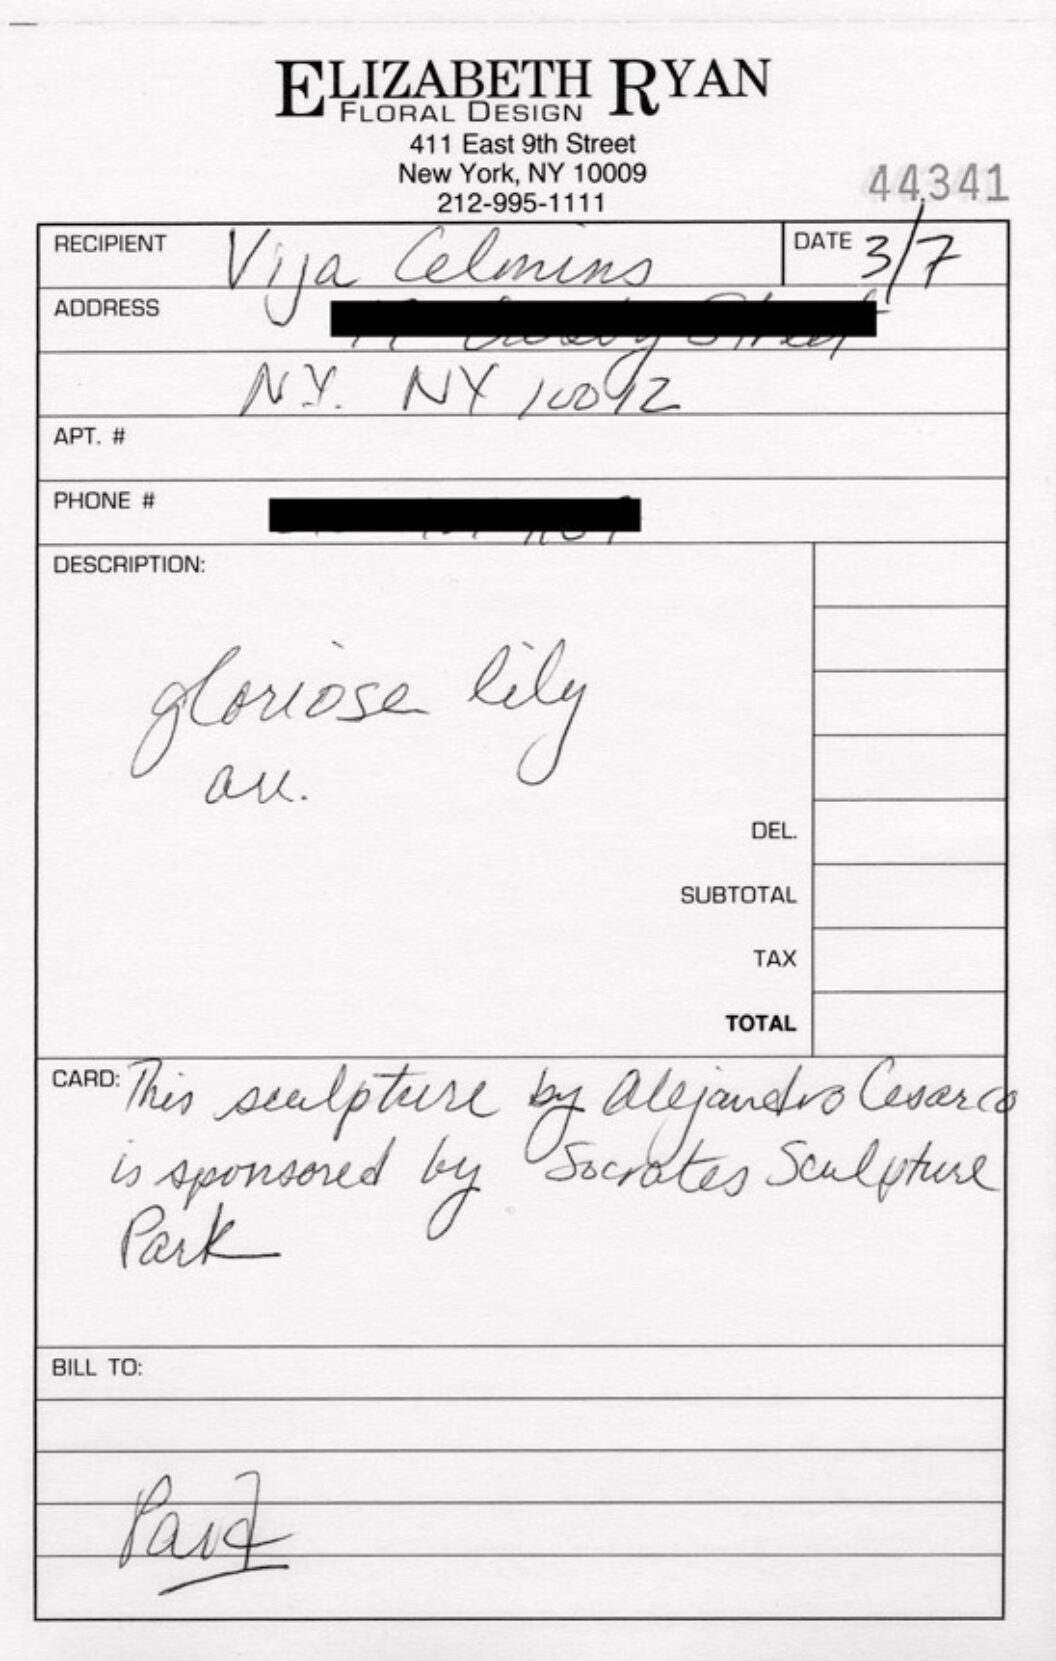 ELIZABETH RYAN
FLORAL DESIGN
411 East 9th Street
New York, NY 10009
212-995-1111
44341
RECIPIENT Vija Celmins DATE 3/7
ADDRESS
N.Y. NY 10012
APT. #
PHONE #
DESCRIPTION:
gloriosa lily
arr.
DEL.
SUBTOTAL
TAX
TOTAL
CARD: This sculpture by Alejandro Cesarco
is sponsored by Socrates Sculpture
Park
BILL TO:
Paid